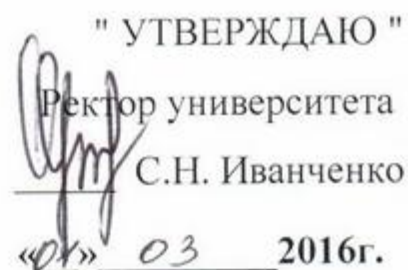 " УТВЕРЖДАЮ "
Ректор университета
С.Н. Иванченко
«01» 03 2016г.